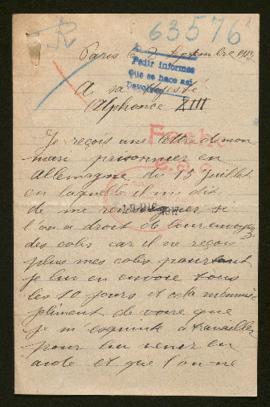 R
63576
Paris 2 Septembre
Pedir informes
Que se hace así
A sa Majesté
Alphonse XIII
Je reçois une lettre de mon
mari prisonnier en
Allemagne du 15 Juillet
en laquelle il me dis
de me si
l'on a droit de leur envoyez
des colis car il ne reçois
plus mes colis pourtant
je lui en envoie tous
les 10 jours et cela
de voire que
je m' à travailler
pour lui venir en
aide et que l'on ne